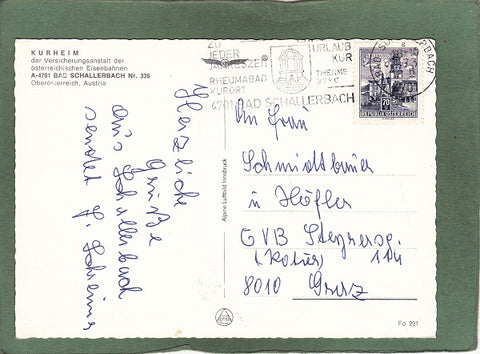 KURHEIM
der Versicherungsanstalt der
österreichischen Eisenbahnen
A-4701 BAD SCHALLERBACH Nr. 335
Oberösterreich, Austria
ZU
JEDER
JAHRESZEIT
RHEUMABAD
KURORT
URLAUB
KUR
THERME
37°C
4701 BAD SCHALLERBACH
70
REPUBLIK ÖSTERREICH
Herzliche
Grüße
aus Schallerbach
sendet
An Frau
Schmidtbauer
in Höfler
GVB Steyrerg.
114
8010 Graz
Alpine Luftbild Innsbruck
Fö 291